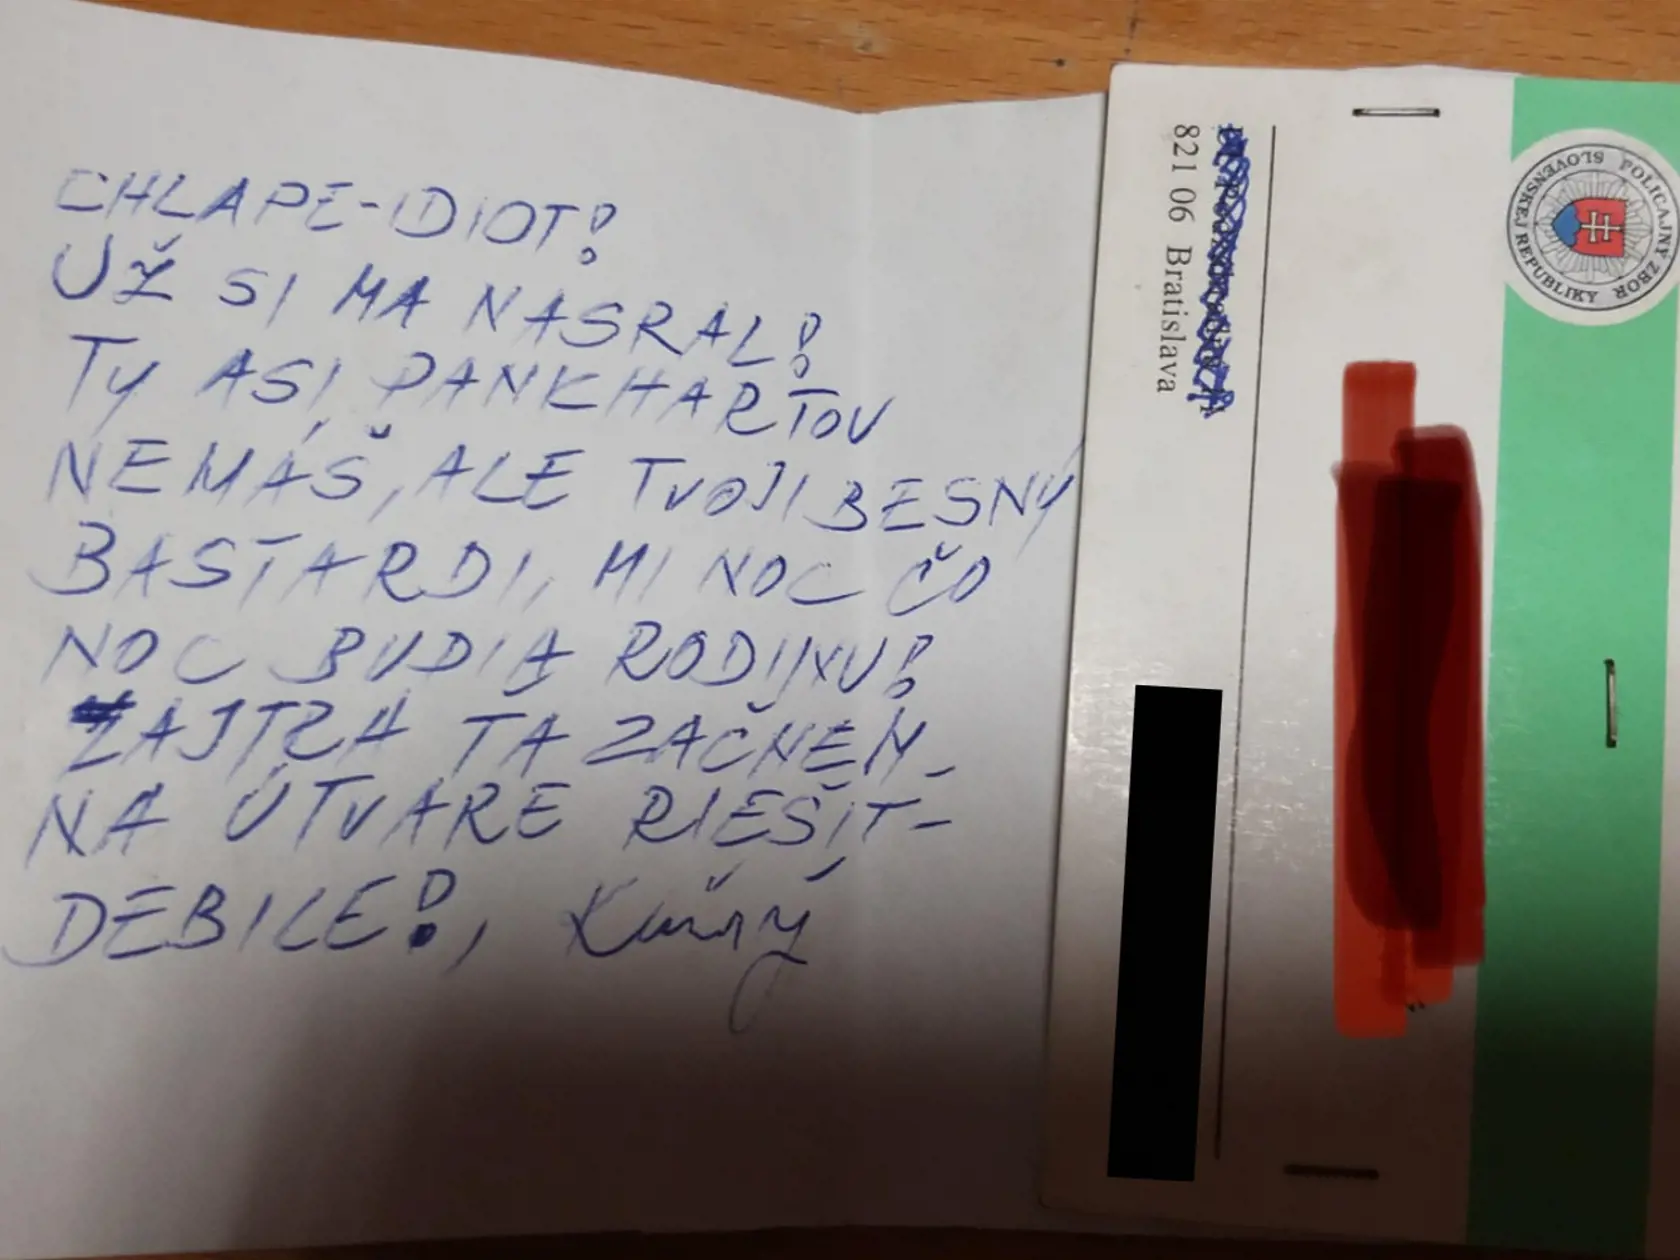 CHLAPE-IDIOT!
UŽ SI MA NASRAL!
TY ASI PANKHARTOV
NEMÁŠ, ALE TVOJI BESNÝ
BASTARDI, MI NOC ČO
NOC BUDIA RODIJNU!
ZAJTRA ŤA ZAČNEM
NA ÚTVARE RIEŠIŤ-
DEBILE!,
821 06 Bratislava
POLICAJNÝ ZBOR
SLOVENSKEJ REPUBLIKY